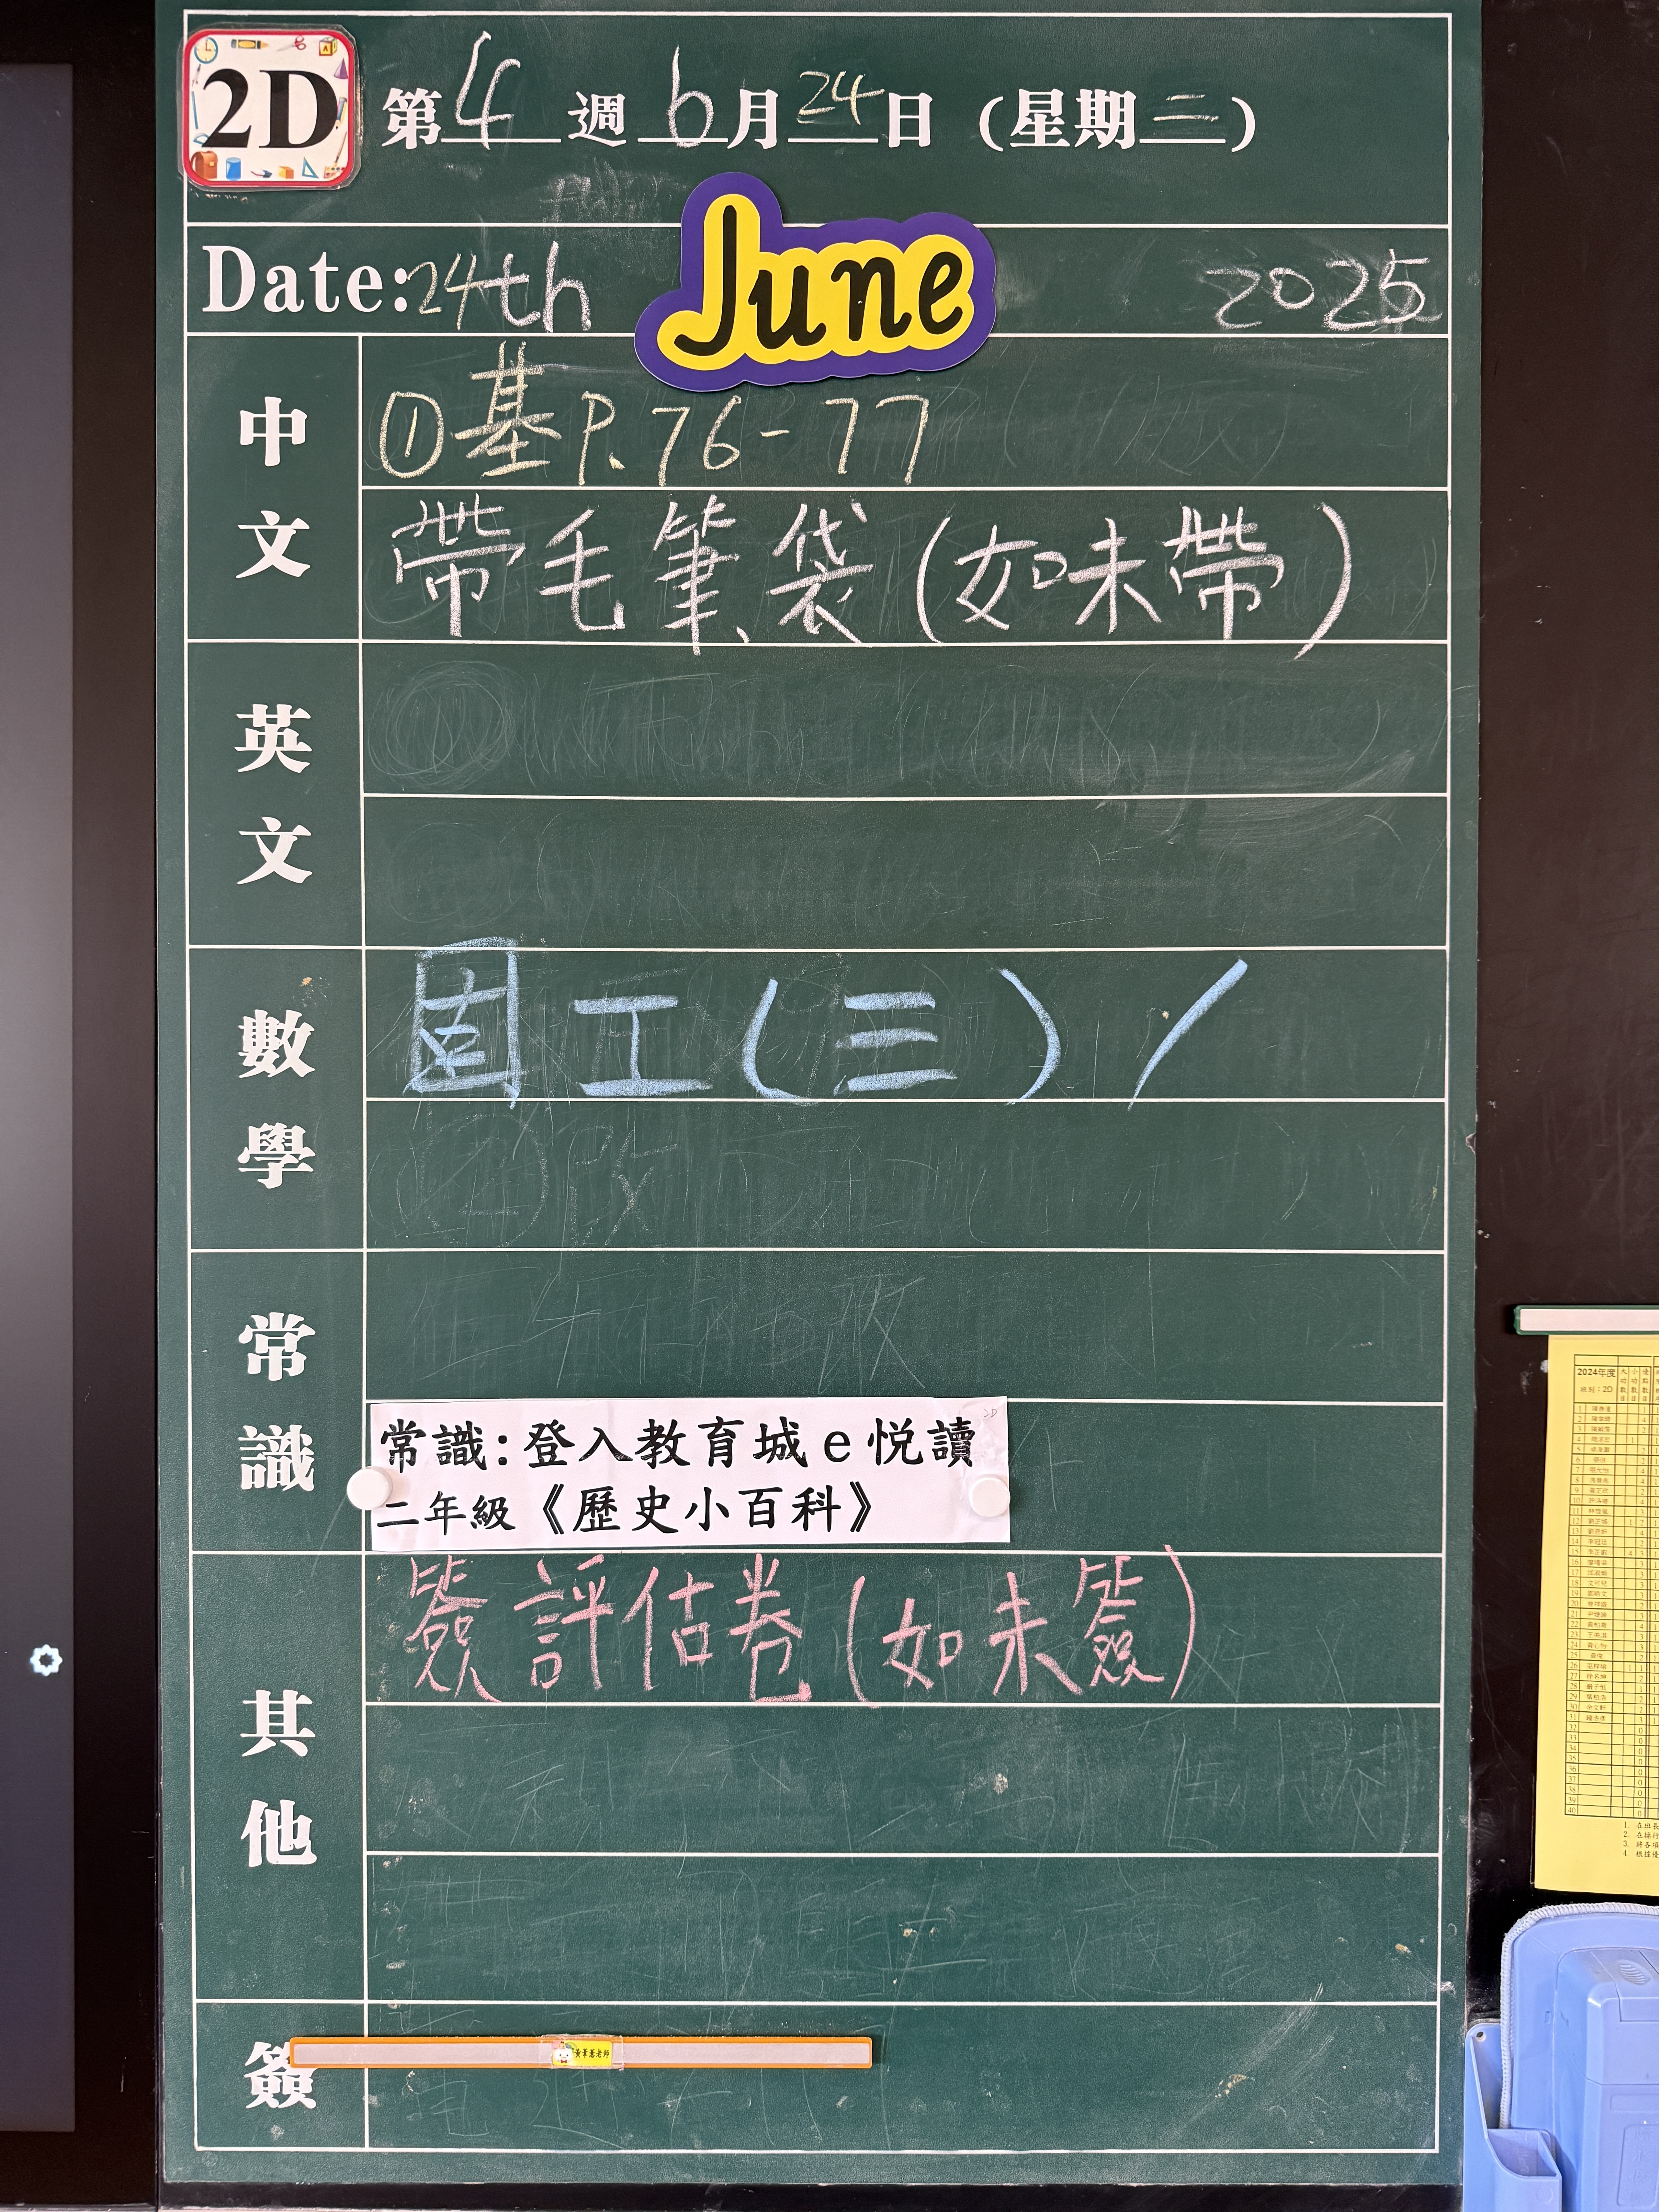 2D
第4週 6月24日(星期二)
Date:24th June 2025
中文
①基P.76-77
帶毛筆袋(如未帶)
英文
數學
固工(三)/
常識
常識:登入教育城e悦讀
二年級《歷史小百科》
其他
簽評估卷(如未簽)
簽
2024年度
班別:2D